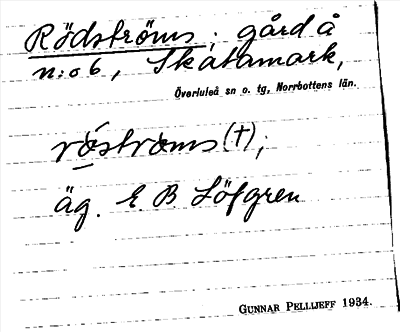 Rödströms; gård å
n:o 6, Skatamark,
Överluleå sn o. tg, Norrbottens län.
röstroms (†);
äg. E. B Löfgren
GUNNAR PELLIJEFF 1934.